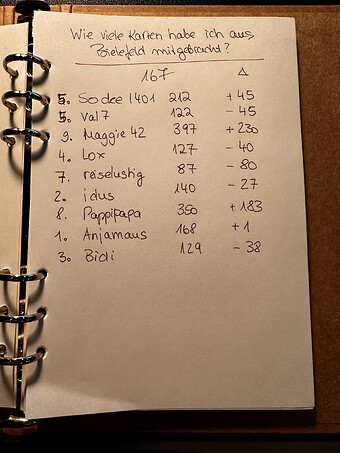 Wie viele Karten habe ich aus
Bielefeld mitgebracht?
167 Δ
5. Sodce 1401 212 +45
5. Val7 122 - 45
9. Maggie 42 397 +230
4. Lox 127 - 40
7. reiselustig 87 - 80
2. idus 140 - 27
8. Pappipapa 350 +183
1. Anjamaus 168 +1
3. Bidi 129 - 38